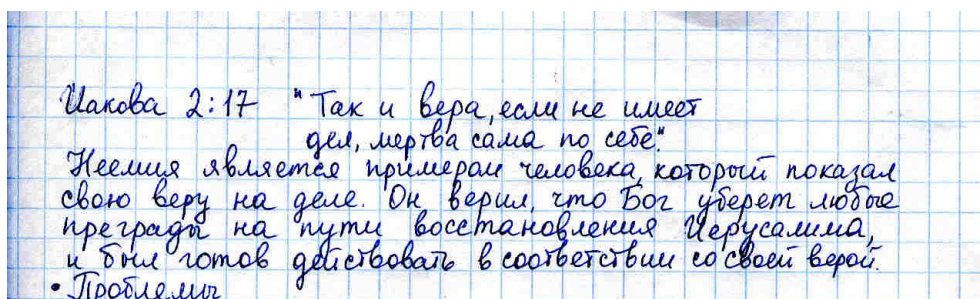 Иакова 2:17 "Так и вера, если не имеет
дел, мертва сама по себе."
Неемия является примером человека, который показал
свою веру на деле. Он верил, что Бог уберет любые
преграды на пути восстановления Иерусалима,
и был готов действовать в соответствии со своей верой.
• Проблемы